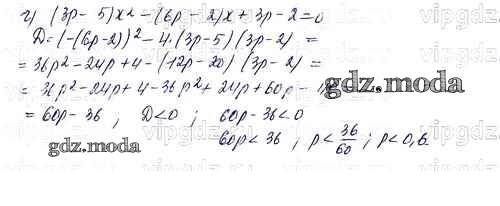 г) (3p - 5)x² - (6p - 2)x + 3p - 2 = 0
D = (-(6p - 2))² - 4·(3p - 5)(3p - 2) =
= 36p² - 24p + 4 - (12p - 20)(3p - 2) =
= 36p² - 24p + 4 - 36p² + 24p + 60p -
= 60p - 36 ; D < 0 ; 60p - 36 < 0
60p < 36 ; p < 36/60 ; p < 0,6
gdz.moda
gdz.moda